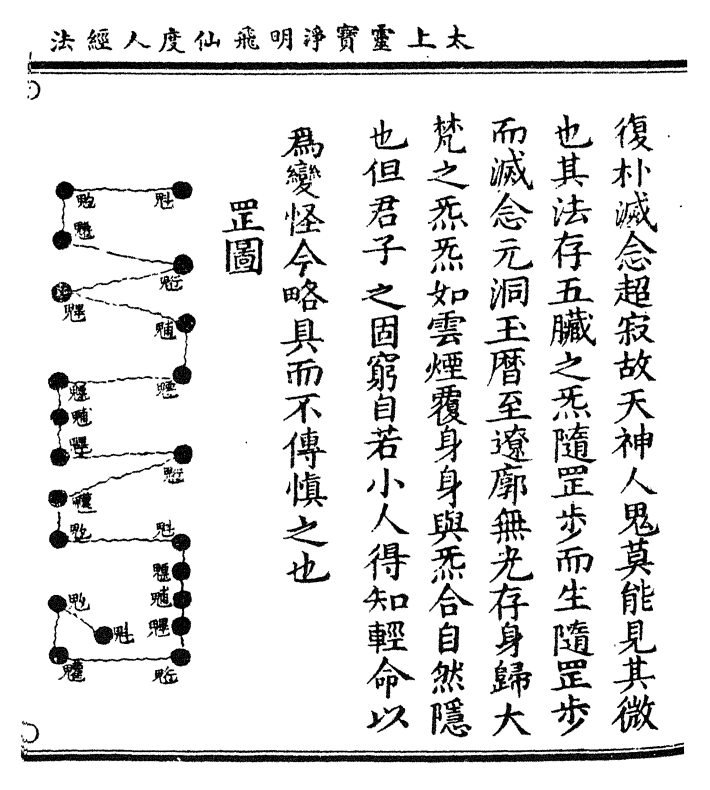 太上靈寶淨明飛仙度人經法
復朴滅念超寂故天神人鬼莫能見其微
也其法存五臟之炁隨罡步而生隨罡步
而滅念元洞玉曆至遼廓無光存身歸大
梵之炁炁如雲煙覆身身與炁合自然隱
也但君子之固窮自若小人得知輕命以
爲變怪今略具而不傳慎之也
罡圖